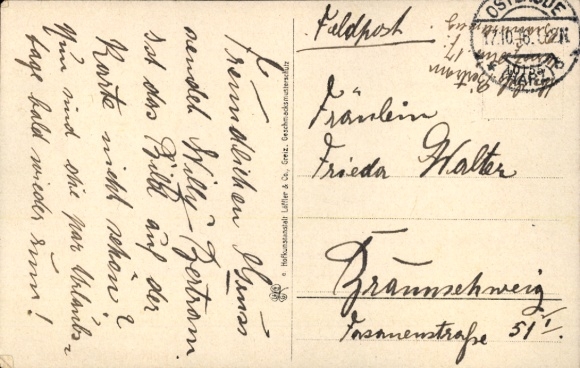 Freundlichen Gruss
sendet Willy Bertram.
Ist das Bild auf der
Karte nicht schön?
Nun sind die paar Urlaubs-
tage bald wieder rum!
© Hofkunstanstalt Löffler & Co., Greiz. Geschmacksmusterschutz
Feldpost
17.10.16.
Fräulein
Frieda Walter
Braunschweig
Fasanenstraße 51 I.